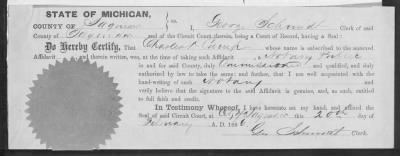 STATE OF MICHIGAN,
COUNTY OF Saginaw ss. I, George Schmidt Clerk of said
County of Saginaw and of the Circuit Court thereof, being a Court of Record, having a Seal:
Do Hereby Certify, That Charles H. Camp whose name is subscribed to the annexed
Affidavit and therein written, was, at the time of taking such Affidavit Notary Public
in and for said County, duly Commissioned and qualified, and duly
authorized by law to take the same: and further, that I am well acquainted with the
hand-writing of such Notary and
verily believe that the signature to the said Affidavit is genuine, and, as such, entitled
to full faith and credit.
In Testimony Whereof, I have hereunto set my hand, and affixed the
Seal of said Circuit Court, at Saginaw this 20th day of
February A.D. 188
Geo Schmidt Clerk.